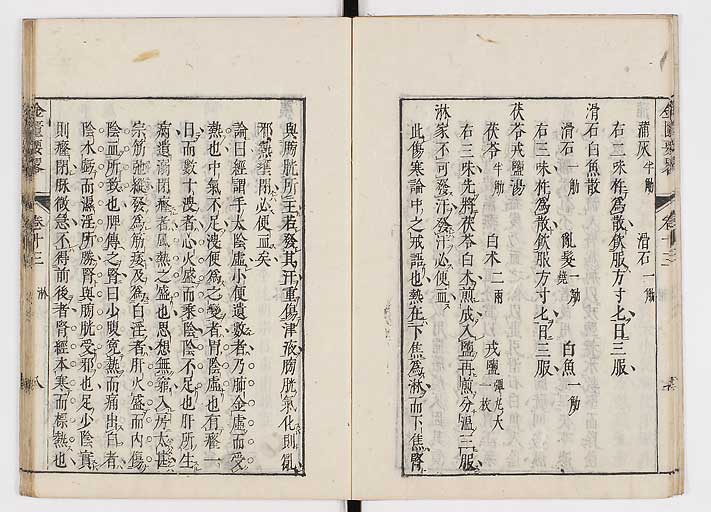 蒲灰半觔 滑石一觔
右二味杵爲散飲服方寸七日三服
滑石白魚散
滑石一觔 亂髮一觔燒 白魚一觔
右三味杵爲散飲服方寸七日三服
茯苓戎鹽湯
茯苓半觔 白朮二兩 戎鹽彈丸大一枚
右三味先將茯苓白朮煎成入鹽再煎分溫三服
淋家不可發汗發汗必便血
此傷寒論中之戒語也熱在下焦爲淋而下焦腎
與膀胱所主若發其汗重傷津液膀胱氣化則亂
邪熱 閉必便血矣
論曰經謂手太陰虛小便遺數者乃肺金虛而受
熱也中氣不足溲便爲之變者胃陰虛也有癃一
日而數十溲者心火盛而乘陰陰不足也肝所生
病遺溺閉癃者風熱之盛也思想無窮入房太甚
宗筋弛縱發爲筋痿及爲白淫者肝火盛而內傷
陰血所致也脾傳之腎曰少腹寃熱而痛出白者
陰水虧而濕淫所勝腎與膀胱受邪也足少陰實
則癃閉脉微急不得前後者腎經本寒而標熱也
金匱要畧 卷十三 淋 八